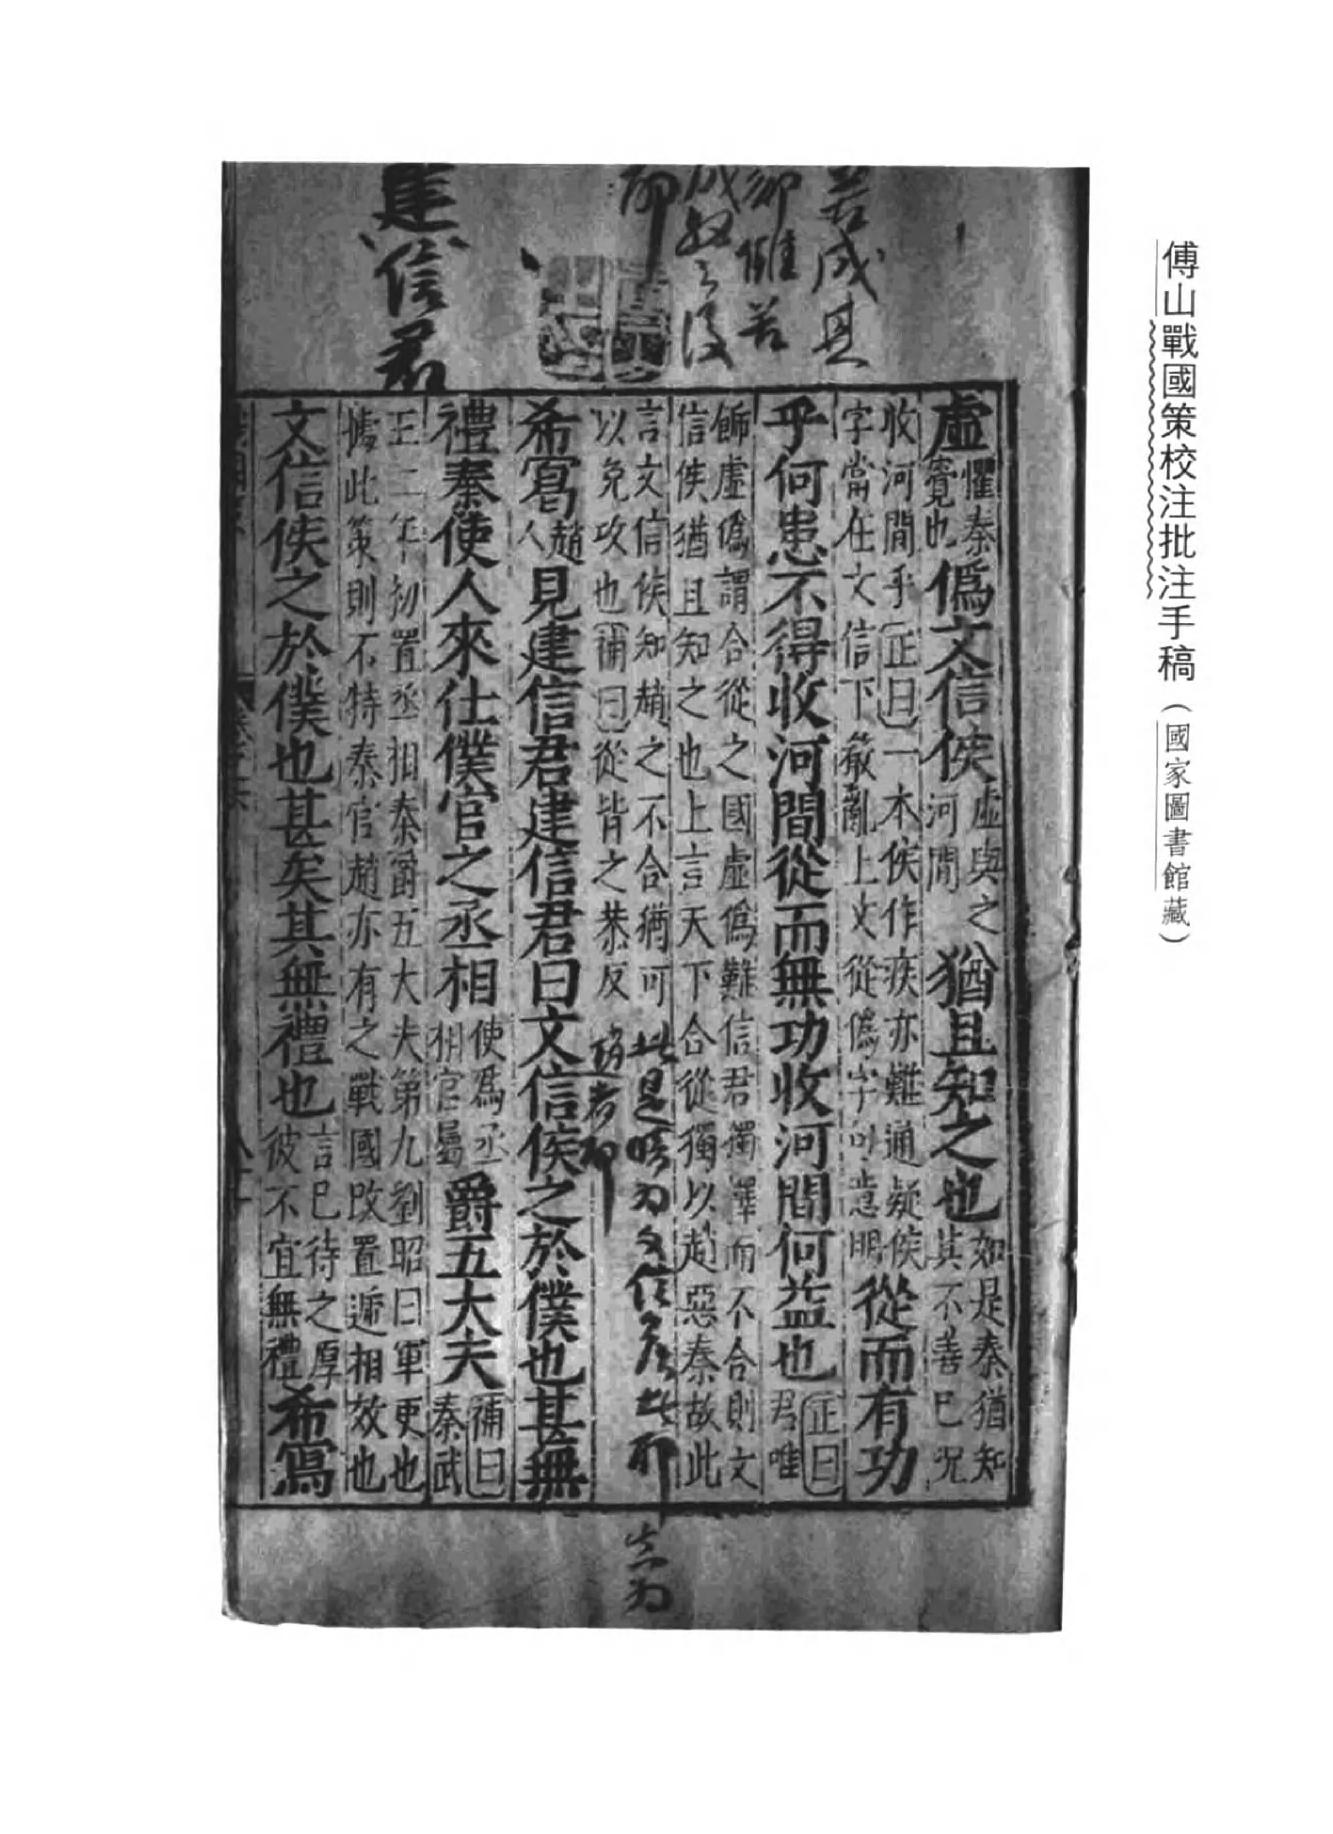 傅山戰國策校注批注手稿（國家圖書館藏）
若成其
鄉離若
成奴之後
耶
建信君
虛懼秦覺也僞文信侯虛與之河間猶且知之也如是秦猶知其不善已況
收河間乎正曰一本侯作疾亦難通疑侯字當在文信下嚴亂上文從僞字句意明從而有功
乎何患不得收河間從而無功收河間何益也正曰君唯
飾虛僞謂合從之國虛僞難信君獨擇而不合則文
信侯猶且知之也上言天下合從獨以趙惡秦故此
言文信侯知趙之不合猶可此是時為文信君地耶
以免攻也補曰從皆之恭反
希寫趙人見建信君建信君曰文信侯之於僕也甚無
禮秦使人來仕僕官之丞相使爲丞相官屬爵五大夫補曰秦武
王二年初置丞相秦爵五大夫第九劉昭曰軍吏也
據此策則不特秦官趙亦有之戰國改置遞相效也
文信侯之於僕也甚矣其無禮也言已待之厚彼不宜無禮希寫